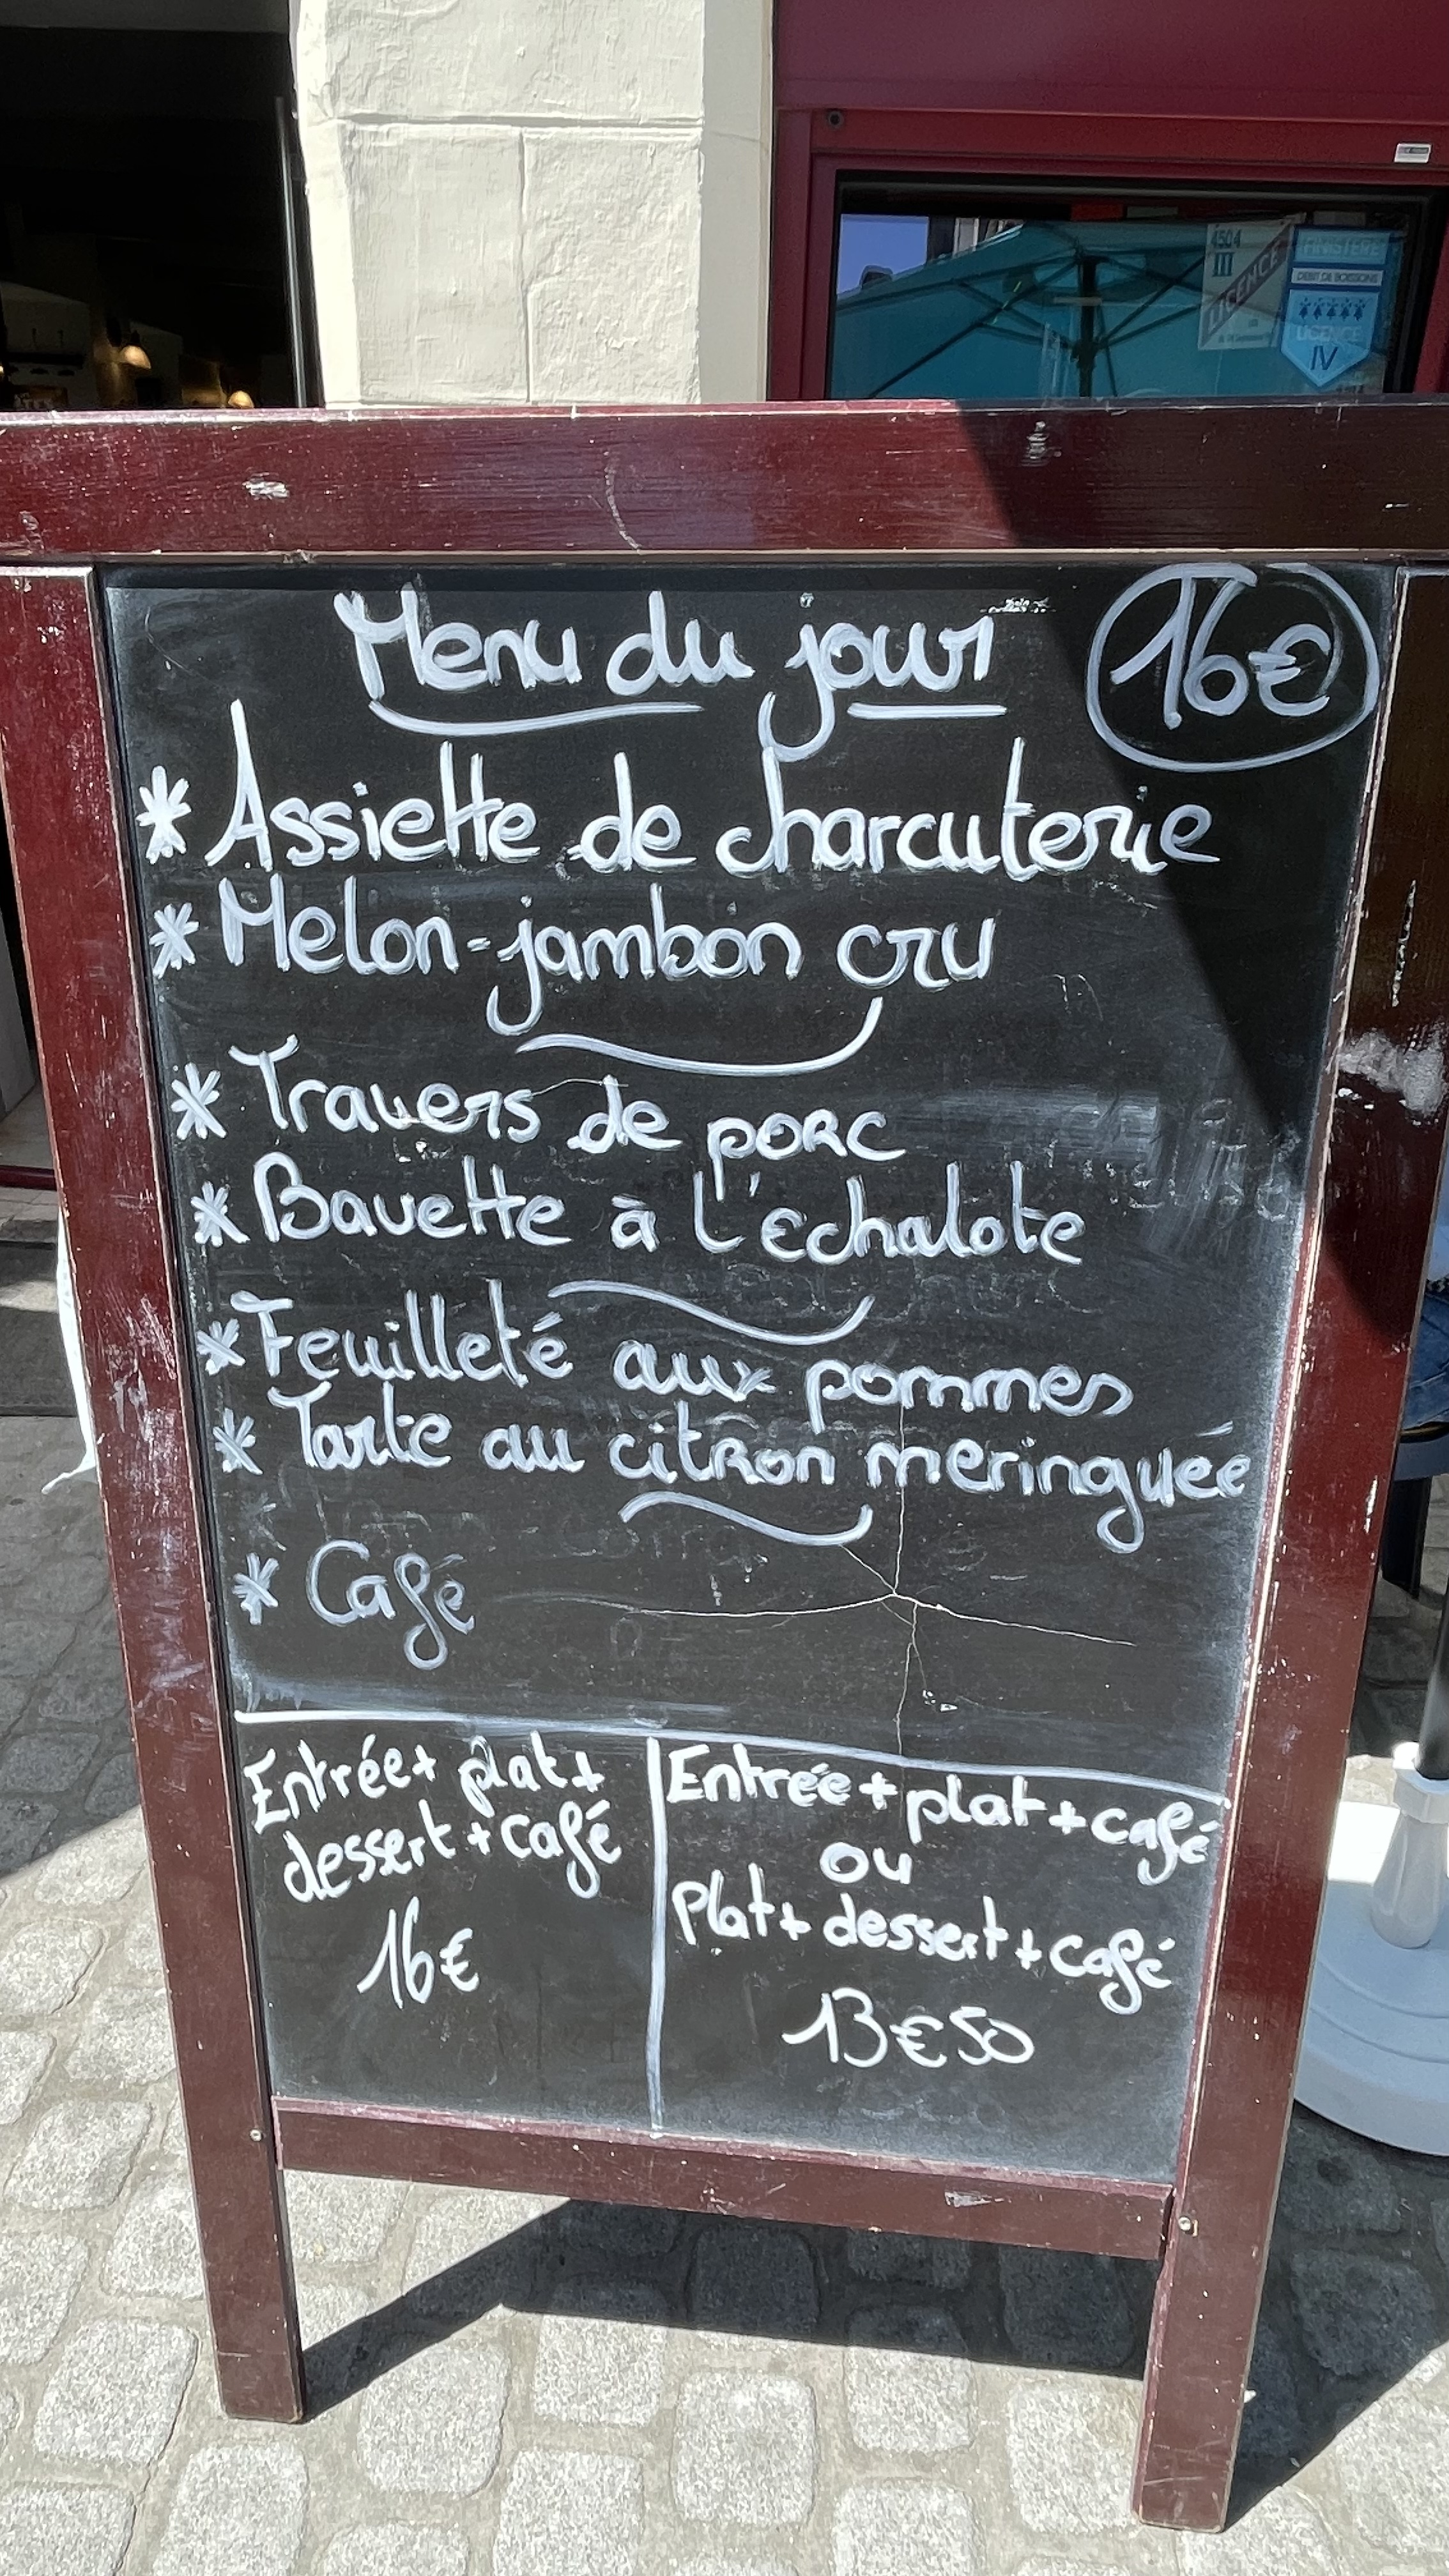 4504
III
LICENCE
FINISTÈRE
DEBIT DE BOISSONS
LICENCE
IV
Menu du jour
16€
* Assiette de charcuterie
* Melon-jambon cru
* Travers de porc
* Bavette à l'échalote
* Feuilleté aux pommes
* Tarte au citron meringuée
* Café
Entrée + plat +
dessert + café
16€
Entrée + plat + café
ou
Plat + dessert + café
13€50